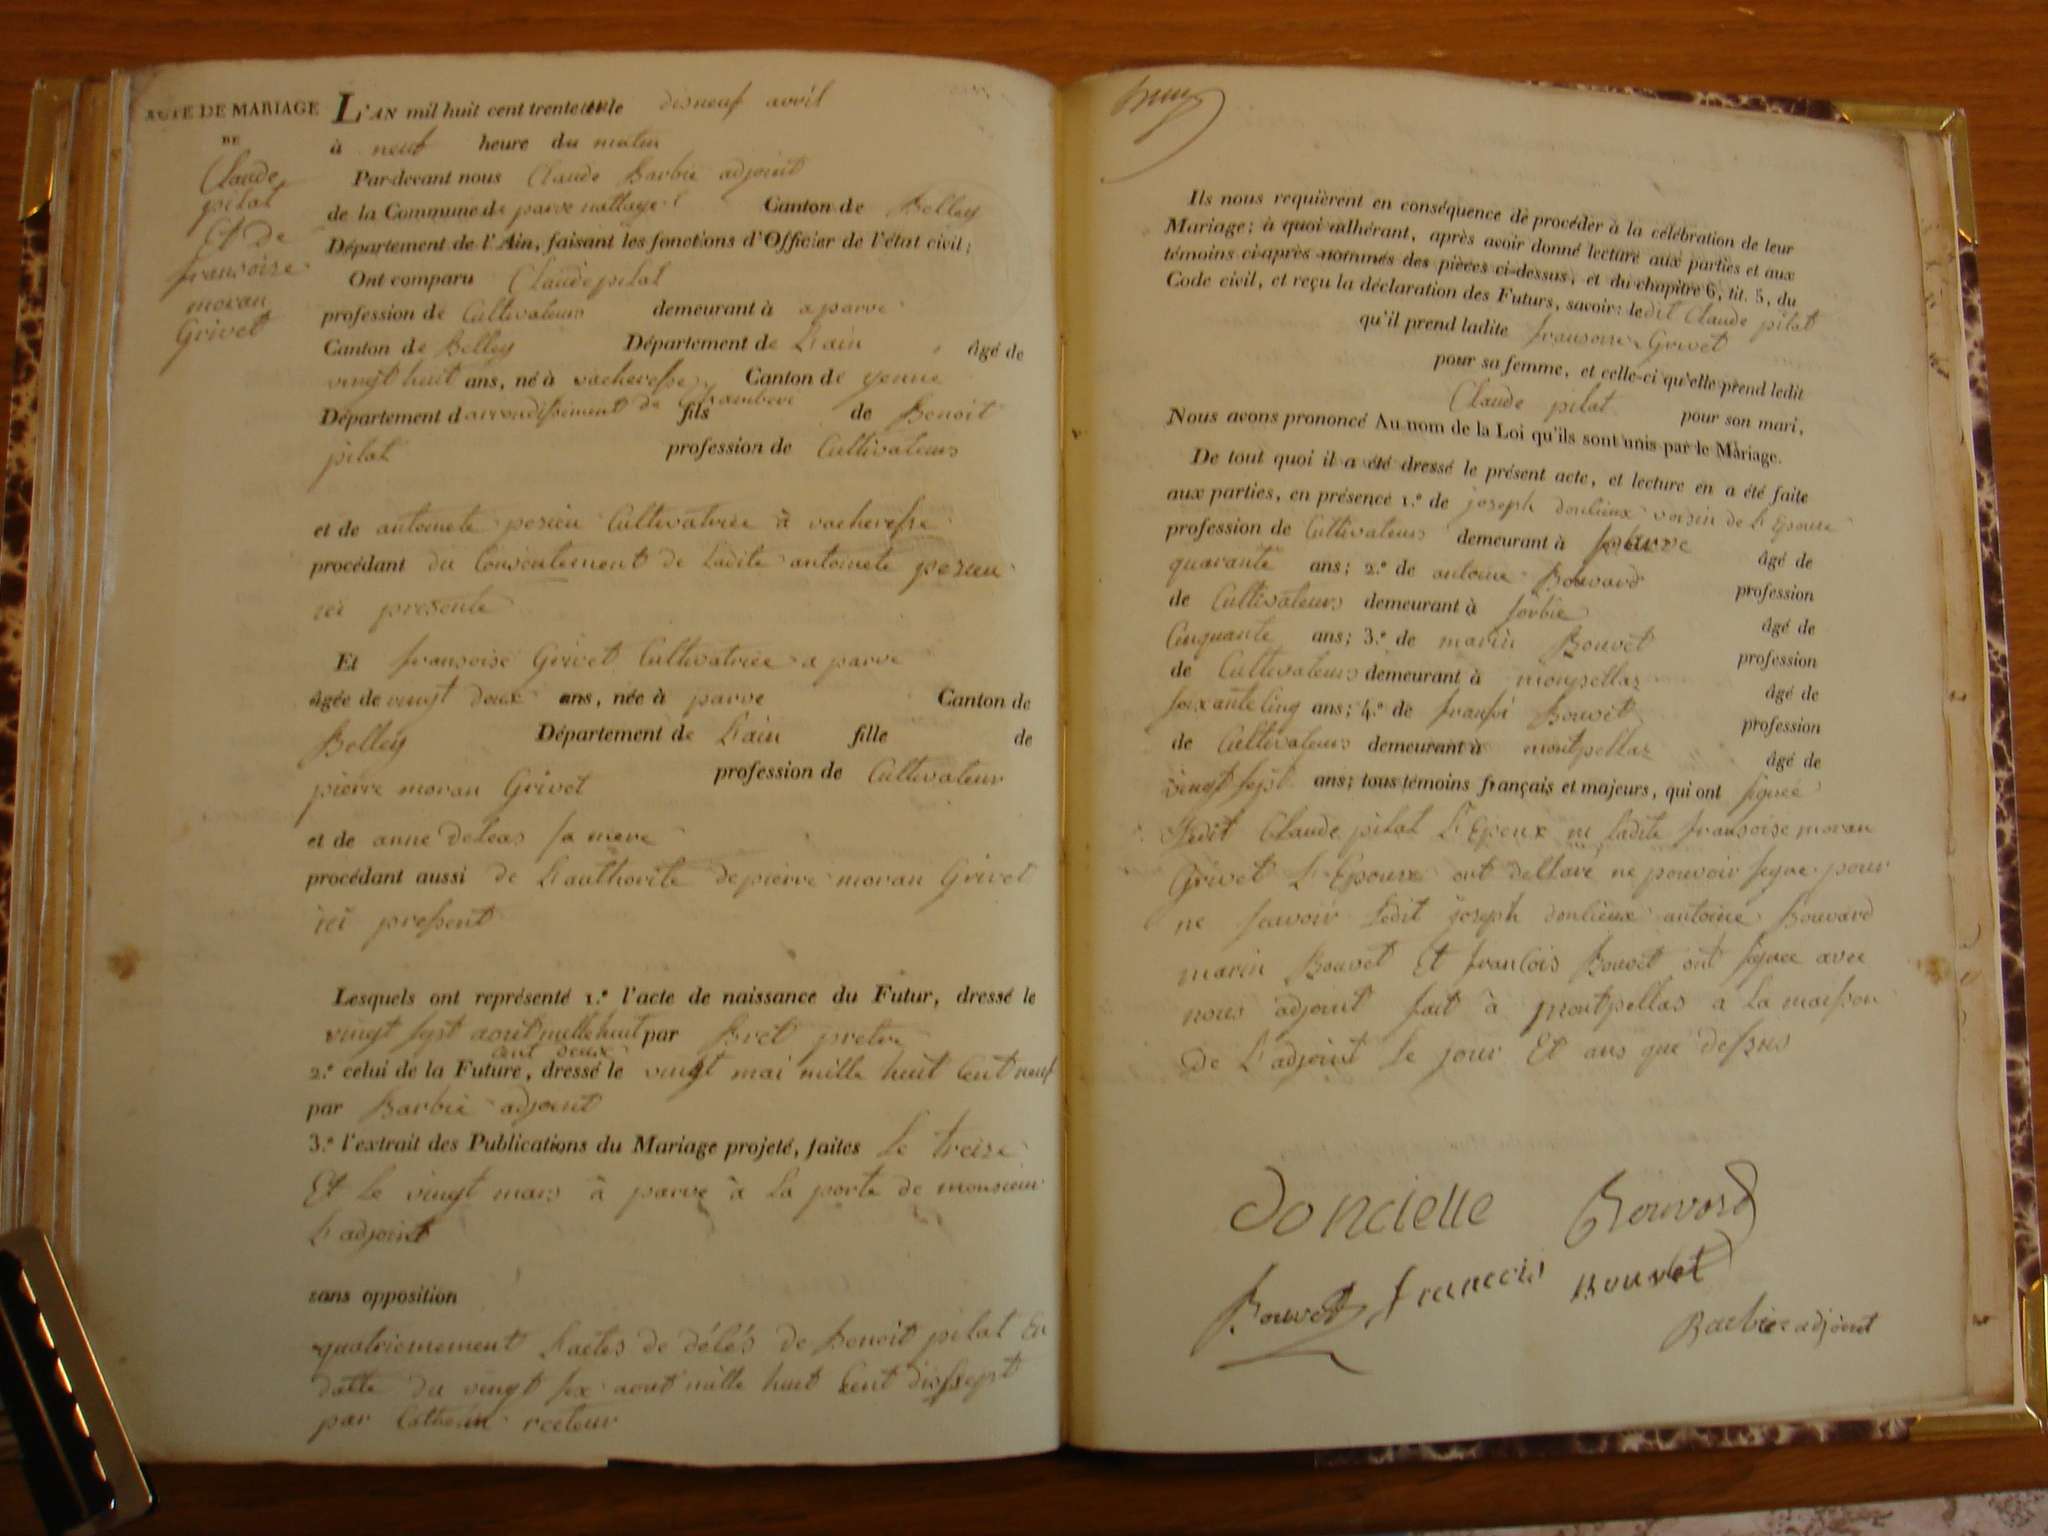 ACTE DE MARIAGE
DE
Claude
pilat
Et de
fransoise
moran
Grivet
L'AN mil huit cent trente un le disneuf avril
à neuf heure du matin
Par-devant nous Claude Barbie adjoint
de la Commune de parve nattage Canton de Belley
Département de l'Ain, faisant les fonctions d'Officier de l'état civil;
Ont comparu Claude pilat
profession de Cultivateurs demeurant à a parve
Canton de Belley Département de L'ain , âgé de
vingt huit ans, né à vacheresse Canton de yenne
Département d arrondissement de Chambere fils de Benoit
pilat profession de Cultivateurs
et de antoinete pezieu Cultivatrice à vacheresse
procédant du Consentement de Ladite antoinete pezieu
ici presente
Et fransoise Grivet Cultivatrice a parve
âgée de vingt deux ans, née à parve Canton de
Belley Département de L'ain fille de
pierre moran Grivet profession de Cultivateur
et de anne deleas sa mere
procédant aussi de L'authorite de pierre moran Grivet
ici pressent
Lesquels ont représenté 1.º l'acte de naissance du Futur, dressé le
vingt sept aout mille huit par Bret pretre
cent deux
2.º celui de la Future, dressé le vingt mai mille huit Cent neuf
par Barbie adjoint
3.º l'extrait des Publications du Mariage projeté, faites Le treize
Et le vingt mars à parve à La porte de monsieur
L'adjoint
sans opposition
quatriemement L'actes de délés de Benoit pilat En
datte du vingt six aout mille huit Cent dissept
par recteur
Ils nous requièrent en conséquence de procéder à la célébration de leur
Mariage; à quoi adhérant, après avoir donné lecture aux parties et aux
témoins ci-après nommés des pièces ci-dessus, et du chapitre 6, tit. 5, du
Code civil, et reçu la déclaration des Futurs, savoir: ledit Claude pilat
qu'il prend ladite fransoise Grivet
pour sa femme, et celle-ci qu'elle prend ledit
Claude pilat pour son mari,
Nous avons prononcé Au nom de la Loi qu'ils sont unis par le Mariage.
De tout quoi il a été dressé le présent acte, et lecture en a été faite
aux parties, en présence 1.º de joseph donlieux voisin de L'Epouse
profession de Cultivateurs demeurant à parve âgé de
quarante ans; 2.º de antoine Bouvard profession
de Cultivateurs demeurant à sorbie âgé de
Cinquante ans; 3.º de marin Bouvet profession
de Cultivateurs demeurant à montpellas âgé de
soixante Cinq ans; 4.º de Bouvet profession
de Cultivateurs demeurant à montpellas âgé de
vingt sept ans; tous témoins français et majeurs, qui ont signée
Ledit Claude pilat L'Epoux ni Ladite fransoise moran
Grivet L'Epouse ont dellaré ne pouvoir signe pour
ne savoir Ledit joseph donlieux antoine Bouvard
marin Bouvet Et francois Bouvet ont signee avec
nous adjoint fait à montpellas a La maison
de L'adjoint Le jour Et ans que dessus
doncielle Bouvard
Bouvet francois Bouvet
Barbier adjoint